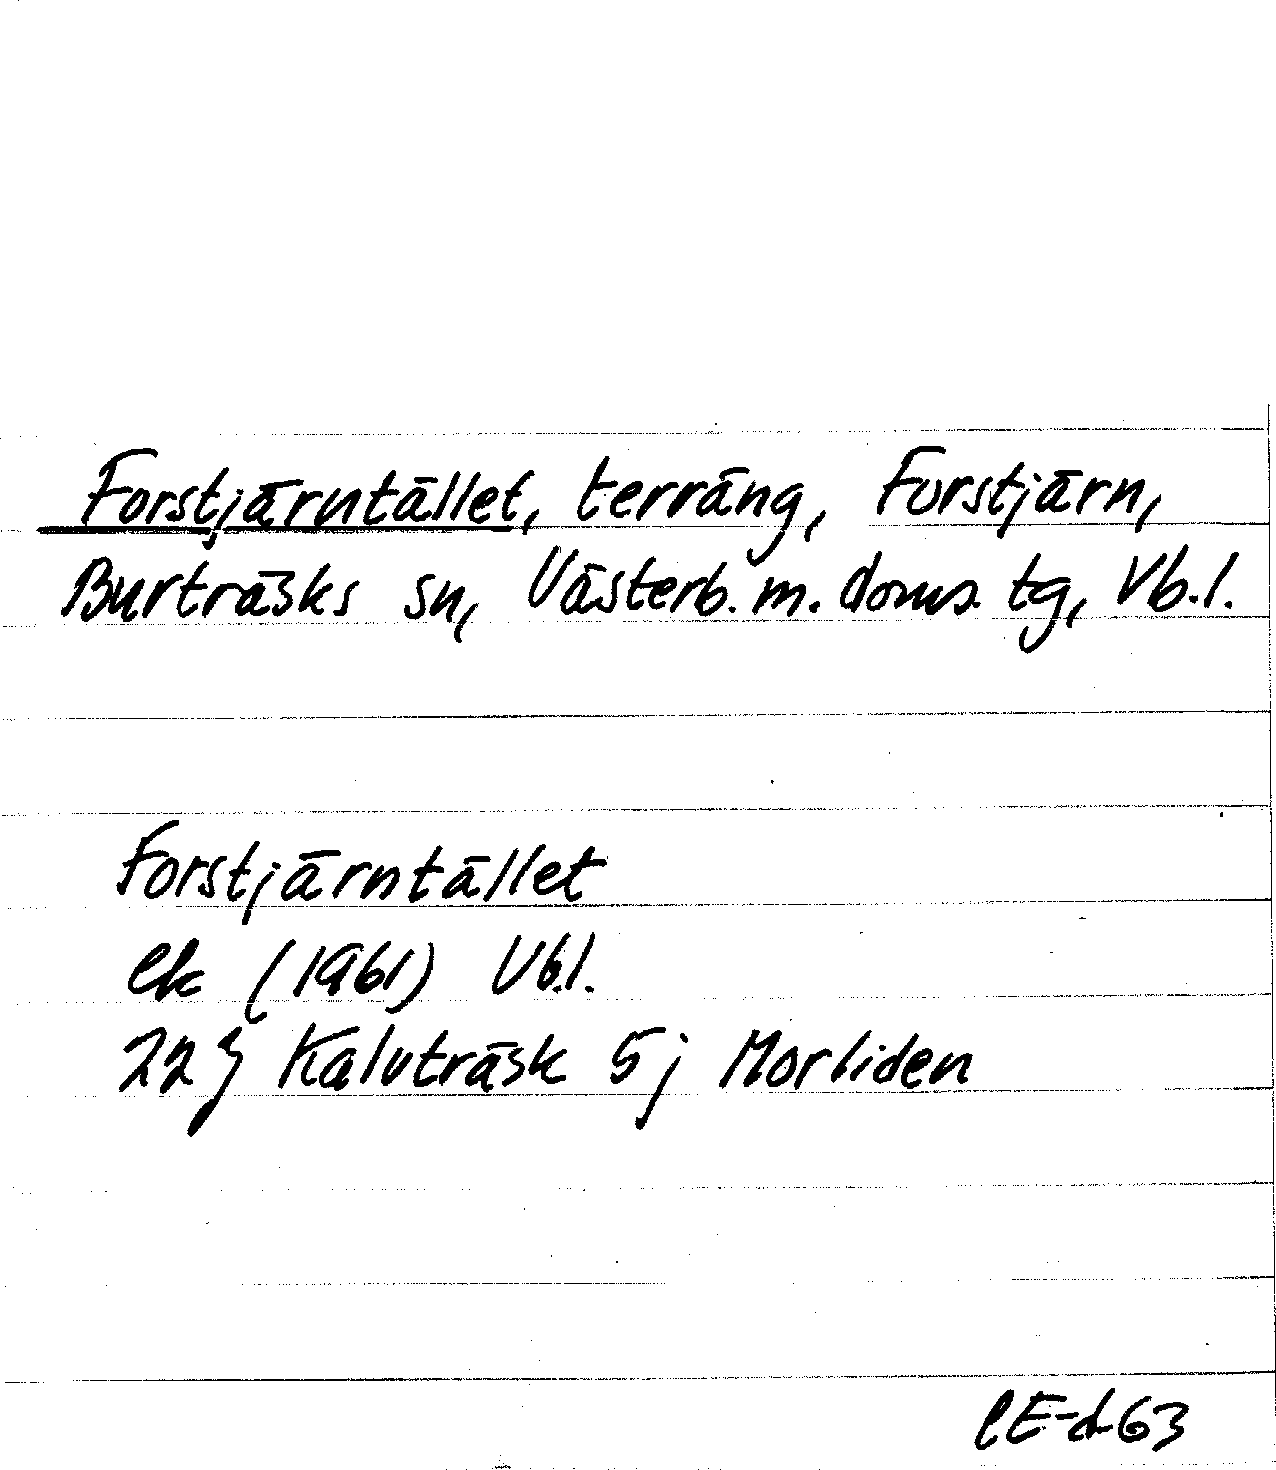 Forstjärntället, terräng, Forstjärn,
Burträsks sn, Västerb. m. doms. tg, Vb.l.
Forstjärntället
ek (1961) Vb.l.
22 J Kalvträsk 5j Morliden
CE-d-63